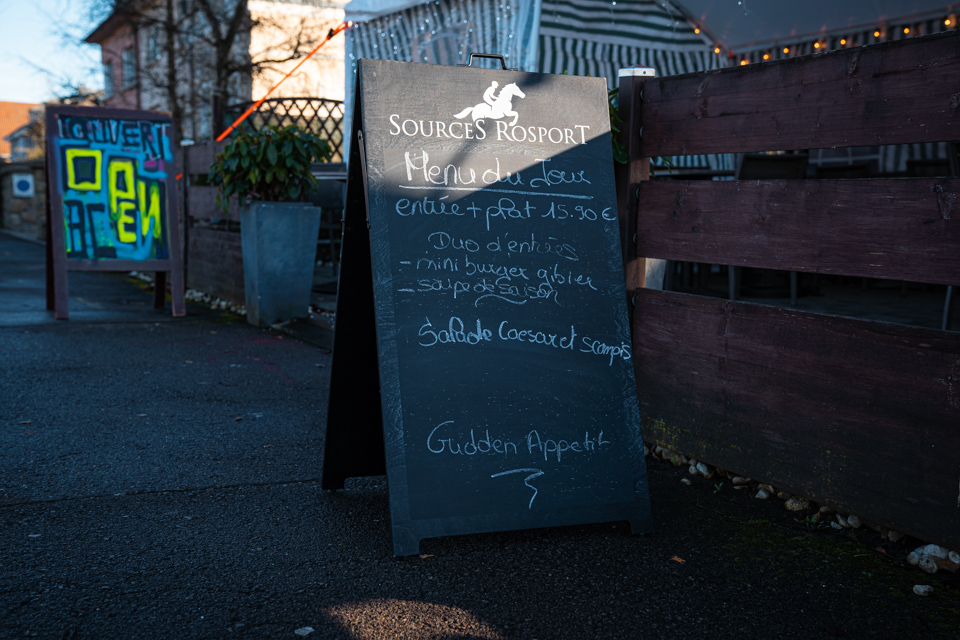 OUVERT
OPEN
SOURCES ROSPORT
Menu du Jour
entrée + plat 15.90 €
Duo d'entrées
- mini burger gibier
- soupe de saison
Salade Caesar et scampis
Gudden Appetit